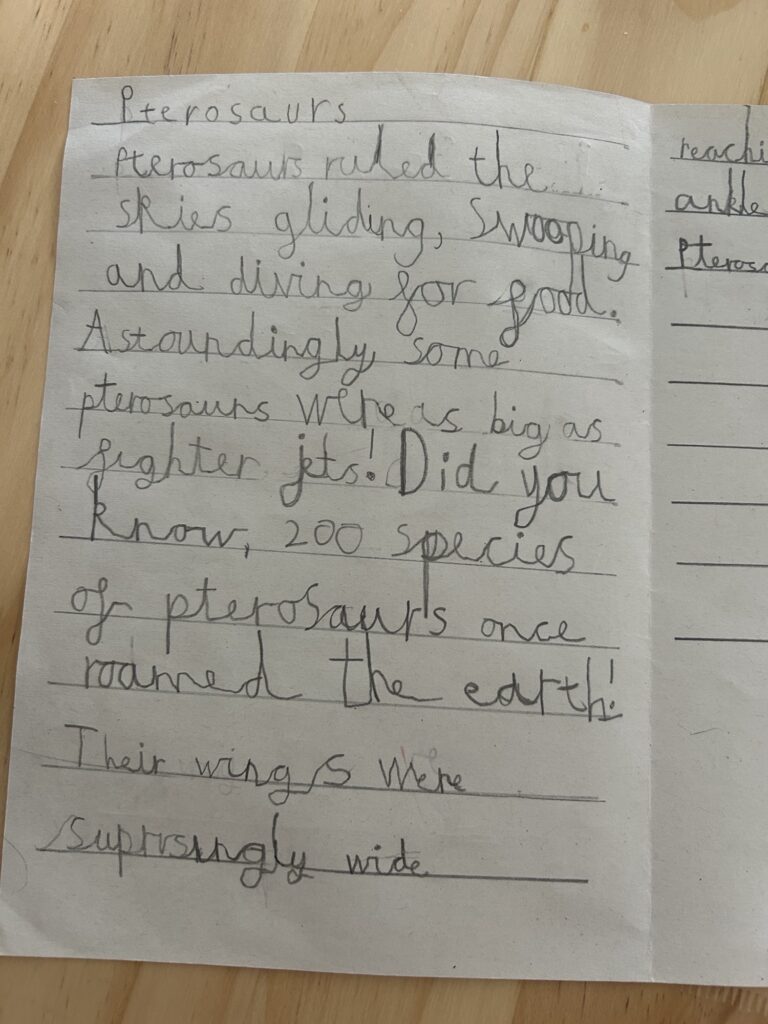 Pterosaurs
Pterosaurs ruled the
skies gliding, swooping
and diving for food.
Astoundingly, some
pterosaurs were as big as
fighter jets! Did you
know, 200 species
of pterosaurs once
roamed the earth!
Their wings were
suprisingly wide
reachi
ankle
Pterosa